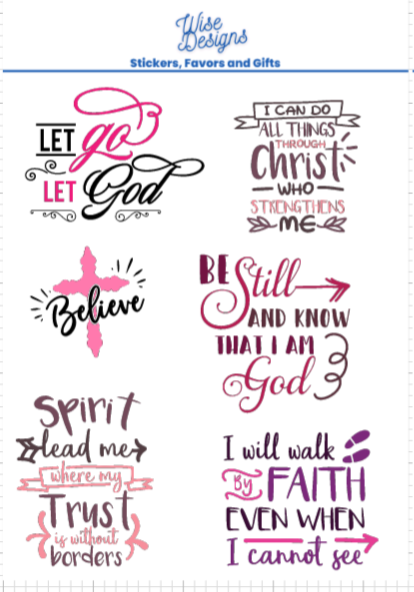 Wise
Designs
Stickers, Favors and Gifts
LET go
LET God
I CAN DO
ALL THINGS
THROUGH
Christ
WHO
STRENGTHENS
ME
Believe
BE Still
AND KNOW
THAT I AM
God
Spirit
lead me
where my
Trust
is without
borders
I will walk
By FAITH
EVEN WHEN
I cannot see